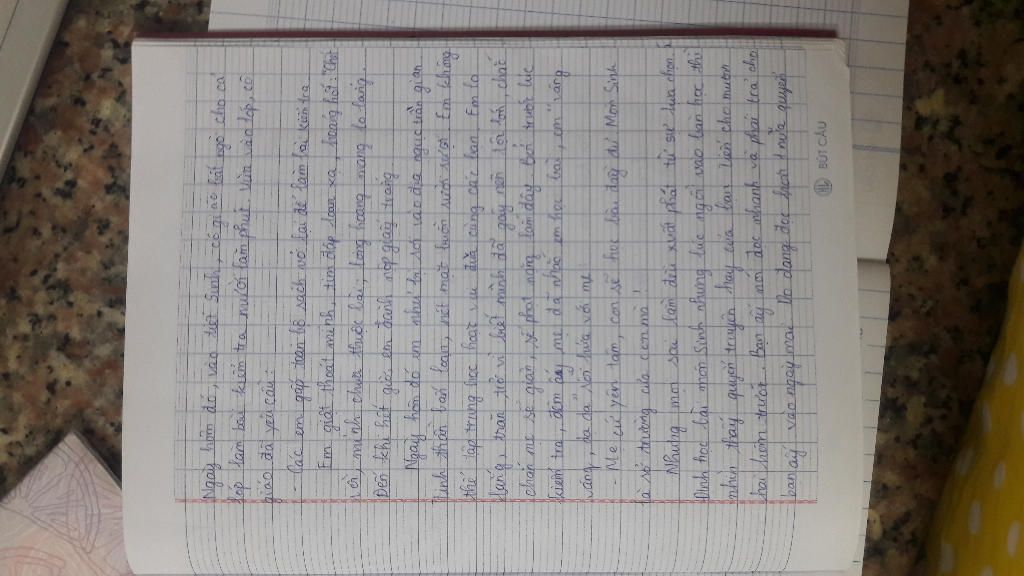 Ngay hôm đó, vào tiết Sinh, cô giáo bất ngờ cho cả
lớp làm bài kiểm tra mười lăm phút. Vừa vào lớp, cô
giáo đã yêu cầu:
- Các em gấp toàn bộ sách vở lại để làm bài kiểm tra.
Em giật thót mình, tim đập loạn xạ, hoảng hốt: "Chết
rồi, mình chưa thuộc bài", lòng hoang mang lo lắng...
Đến khi hết giờ, em đành nộp giấy trắng
Ngày hôm đó em như bị rơi vào địa ngục trần gian
Tinh thần bấn loạn, nét mặt buồn rười rượi. Em không
thể tập trung học hoặc vui đùa cùng các bạn. Em lo
lắng, trăn trở vì biết mình đã gây nên tội lỗi, chắc
chắn mẹ sẽ giận, sẽ phạt nặng lắm đây. Bởi trước lúc
kiểm tra, đêm ấy, mẹ đã nhắc em học bài, em "vâng
vâng, dạ dạ" rồi hứa với mẹ:
- Mẹ cứ yên tâm, con sẽ học bài đầy đủ. Môn Sinh
là sở trường của con mà!
Nhưng mọi sai lầm đều xuất phát từ sự lựa chọn.
Định học bài môn Sinh nhưng lúc ngồi vào bàn học thì
nhìn thấy quyển truyện hay của bạn Tiến cho mượn
hai hôm trước. Bạn ấy nói đọc nhanh và phải trả cho
bạn ấy vào ngày mai. Do đang đọc hơn nửa quyển
BÚT CÂU